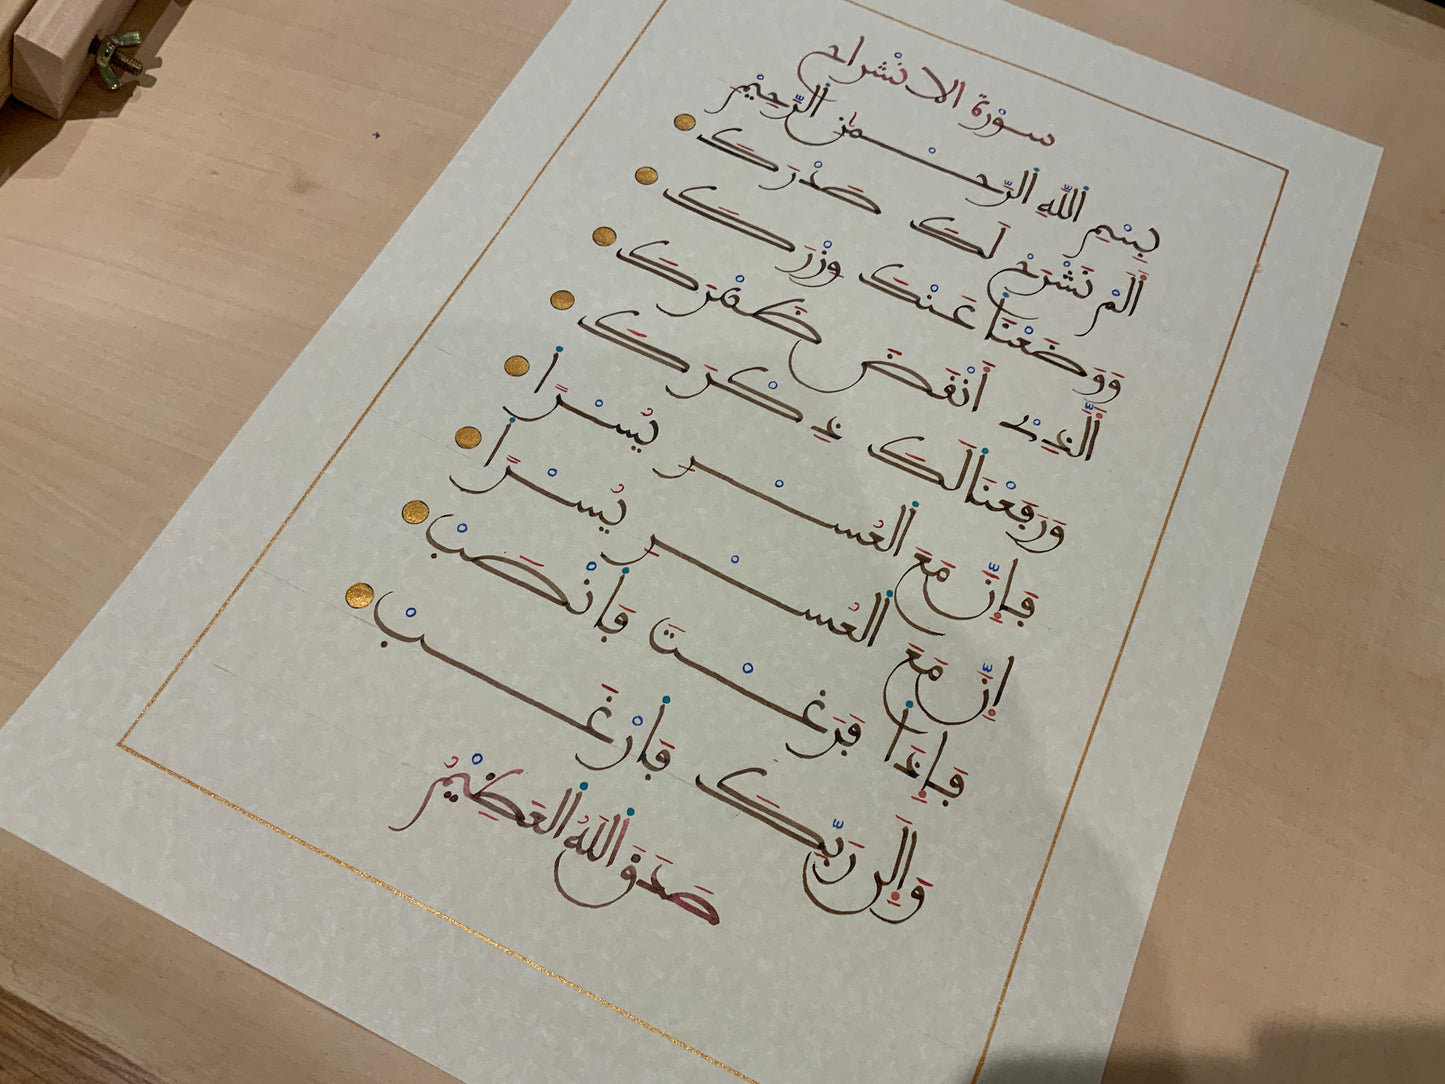 سورة الانشراح
بِسْمِ اللَّهِ الرَّحْمٰنِ الرَّحِيْمِ
أَلَمْ نَشْرَحْ لَكَ صَدْرَكَ
وَوَضَعْنَا عَنْكَ وِزْرَكَ
أَلَّذِىْ أَنْقَضَ ظَهْرَكَ
وَرَفَعْنَا لَكَ ذِكْرَكَ
فَإِنَّ مَعَ الْعُسْرِ يُسْرًا
إِنَّ مَعَ الْعُسْرِ يُسْرًا
فَإِذَا فَرَغْتَ فَانْصَبْ
وَإِلَى رَبِّكَ فَارْغَبْ
صَدَقَ اللَّهُ الْعَظِيْمُ